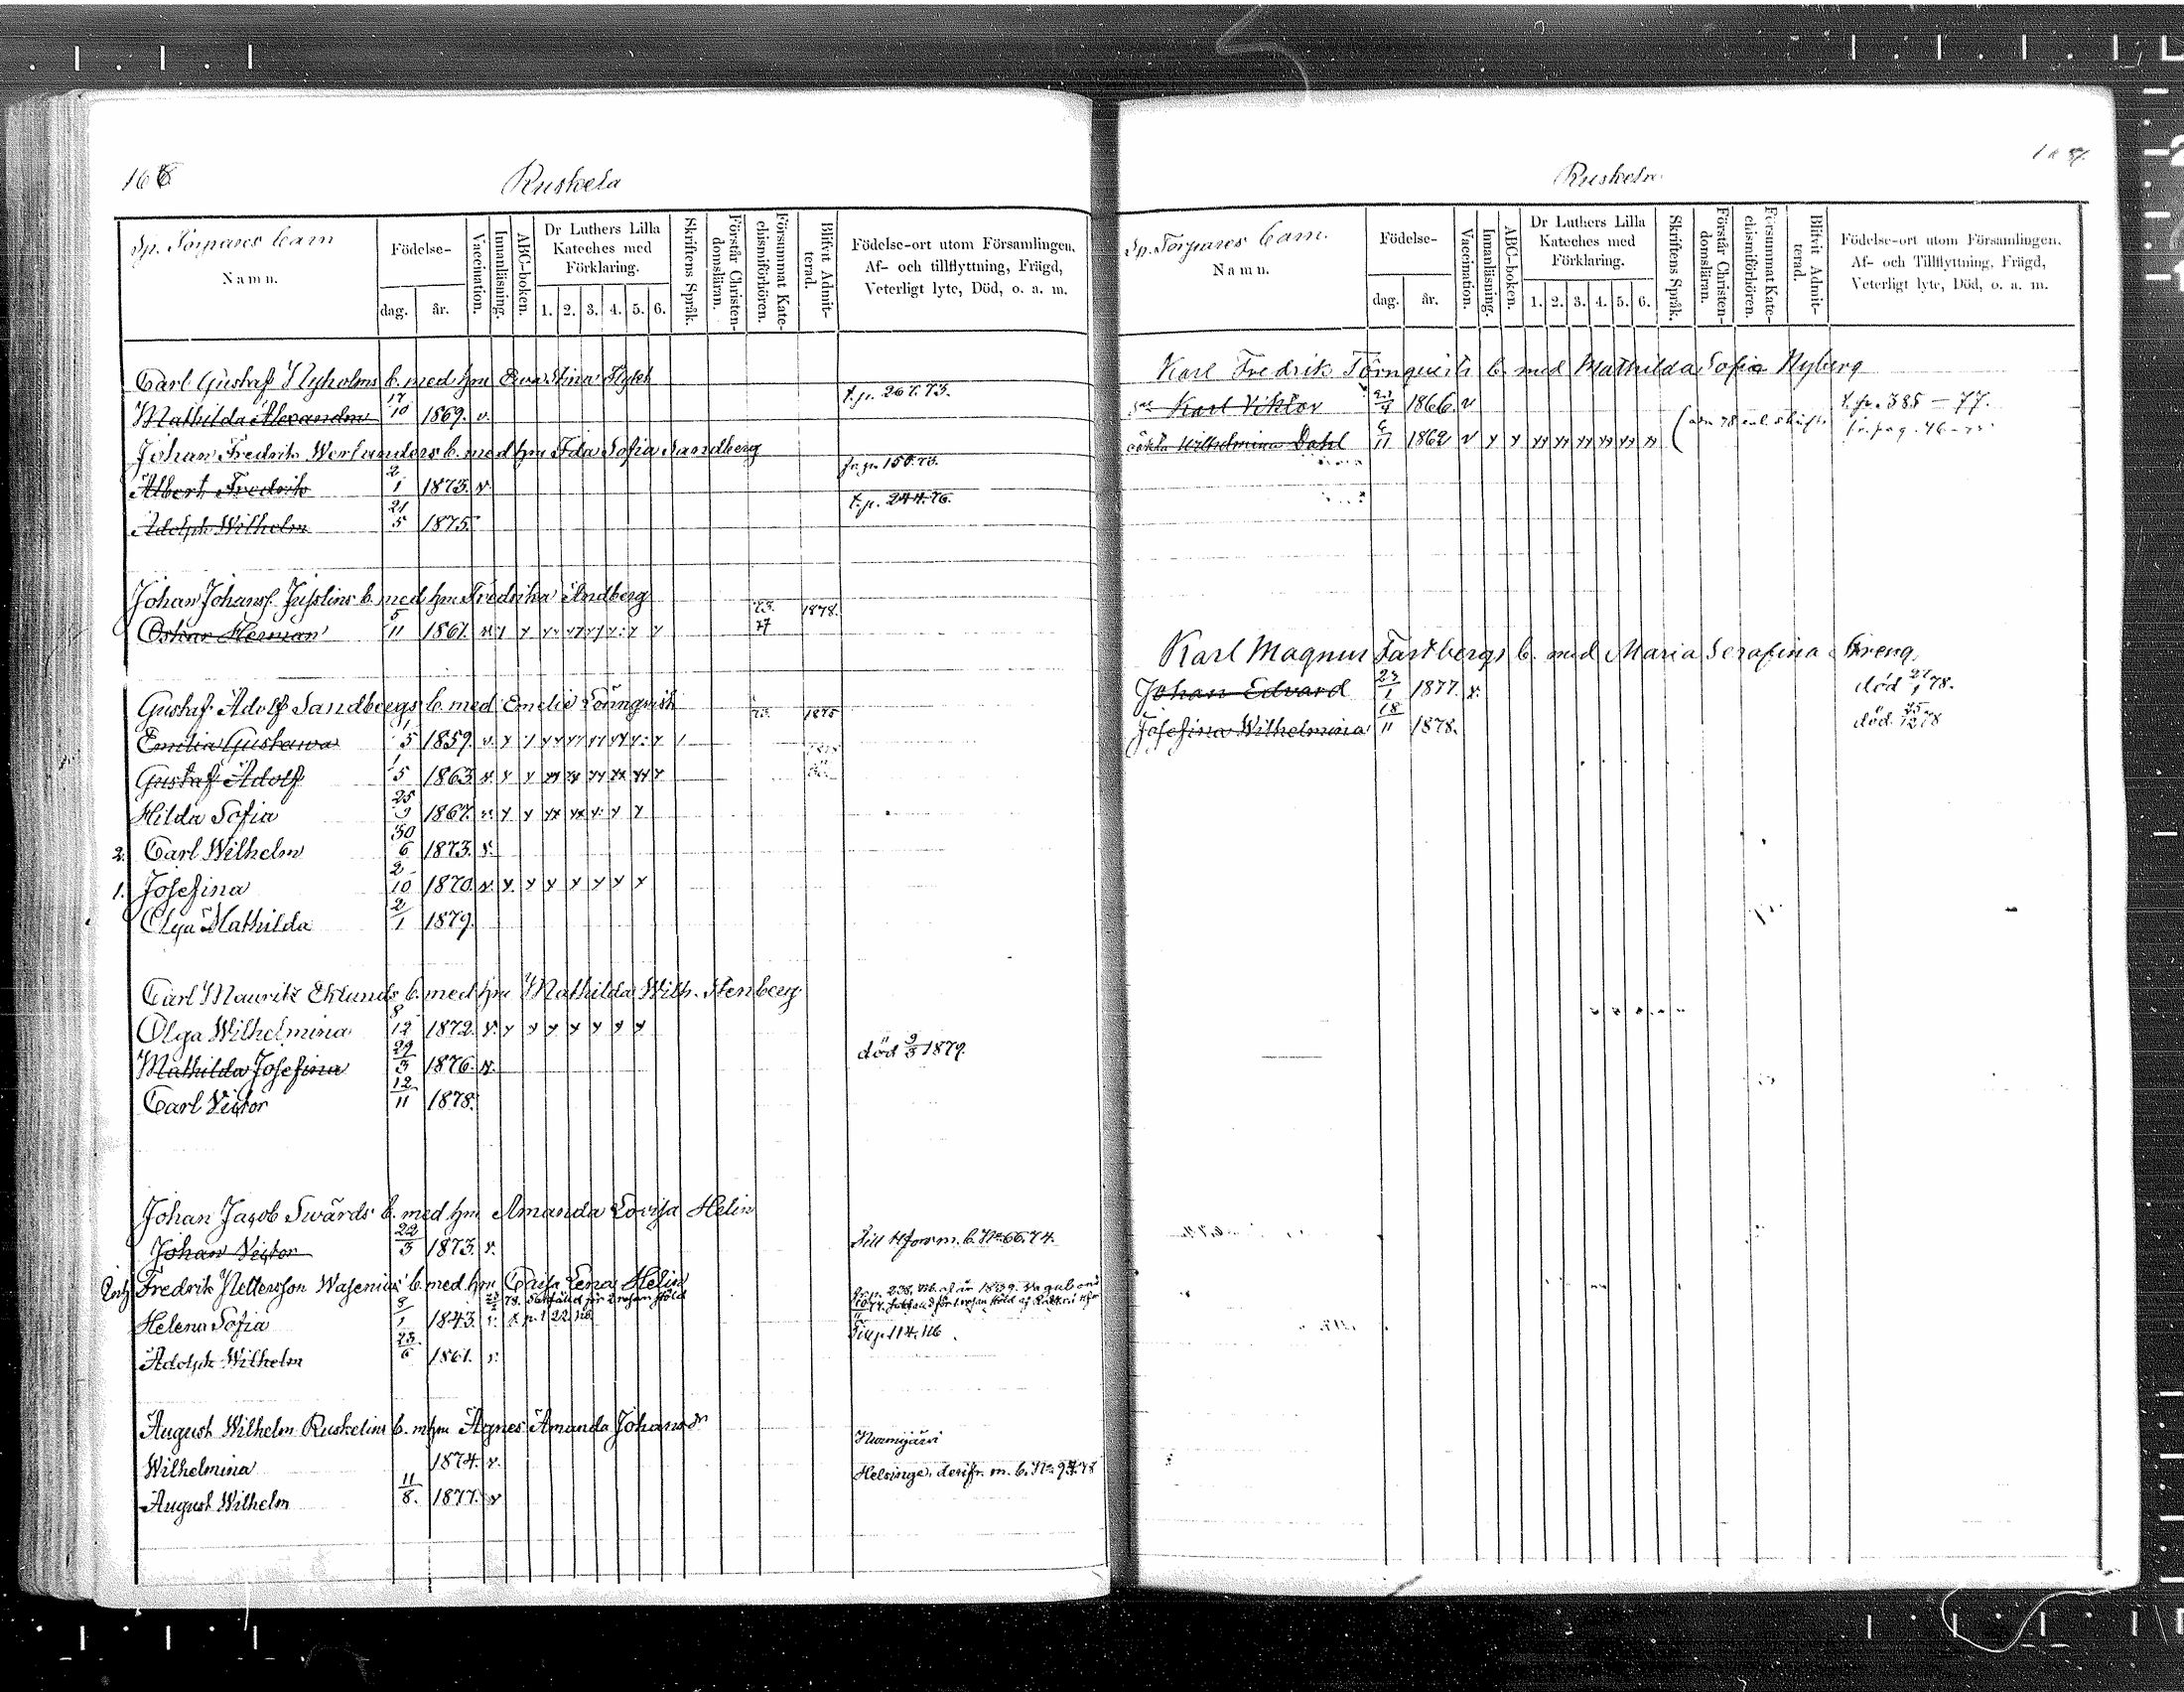 166
Ruskela
Sp. Torpares barn
Namn.
Födelse-
dag.
år.
Vaccination.
Innanläsning.
ABC-boken.
Dr Luthers Lilla
Kateches med
Förklaring.
1. 2. 3. 4. 5. 6.
Skriftens Språk.
Förstår Christen-
domsläran.
Försummat Kate-
chismiförhören.
Blifvit Admit-
terad.
Födelse-ort utom Församlingen,
Af- och tillflyttning, Frägd,
Veterligt lyte, Död, o. a. m.
Carl Gustaf Nyholms b. med hm Eva Stina Flykt
Mathilda Alexandra 17/10 1869. v. t. p. 267.73.
Johan Fredrik Werlanders b. med hm Ida Sofia Sandberg
Albert Fredrik 2/1 1873. v. fr. p. 150.73.
Adolph Wilhelm 21/5 1875. t. p. 244.76.
Johan Johans. Jusslins b. med hm Fredrika Lindberg
Oskar Herman 5/11 1861. 73. 77 1878.
Gustaf Adolf Sandbergs b. med Emelie Lönnqvist
Emilia Gustawa 1/5 1859. 73. 1875
Gustaf Adolf 1/5 1863.
Hilda Sofia 25/9 1867.
2. Carl Wilhelm 30/6 1873. v.
1. Josefina 2/10 1870.
Olga Mathilda 2/1 1879.
Carl Mauritz Eklunds b. med hm Mathilda Wilh. Stenberg
Olga Wilhelmina 8/12 1872.
Mathilda Josefina 29/3 1876. v. död 9/3 1879.
Carl Victor 12/11 1878.
Johan Jacob Swärds b. med hm Amanda Lovisa Helin
Johan Victor 22/3 1873. v. Till Hfors m. b. No 66.74.
Fredrik Pettersson Wasenius b. med hm Cajsa Lena Helin
Helena Sofia 8/1 1843. v.
Adolph Wilhelm 23/6 1861. v. Till p. 114.116
August Wilhelm Ruskelins b. m hm Agnes Amanda Johansdr
Wilhelmina 1874. v. Nurmijärvi
August Wilhelm 11/8. 1877. v Helsinge, derifr. m. b. No 97.78
Ruskela
Sp. Torpares barn.
Namn.
Födelse-
dag.
år.
Vaccination.
Innanläsning.
ABC-boken.
Dr Luthers Lilla
Kateches med
Förklaring.
1. 2. 3. 4. 5. 6.
Skriftens Språk.
Förstår Christen-
domsläran.
Försummat Kate-
chismiförhören.
Blifvit Admit-
terad.
Födelse-ort utom Församlingen,
Af- och Tillflyttning, Frägd,
Veterligt lyte, Död, o. a. m.
Karl Fredrik Törnqvists b. med Mathilda Sofia Nyberg
Karl Viktor 1866. v t. p. 385 - 77.
Wilhelmina Dahl 6/11 1862 v
Karl Magnus Fastbergs b. med Maria Serafina Streng
Johan Edvard 23/1 1877. v. död 27/1 78.
Josefina Wilhelmina 18/11 1878. död 25/12 78